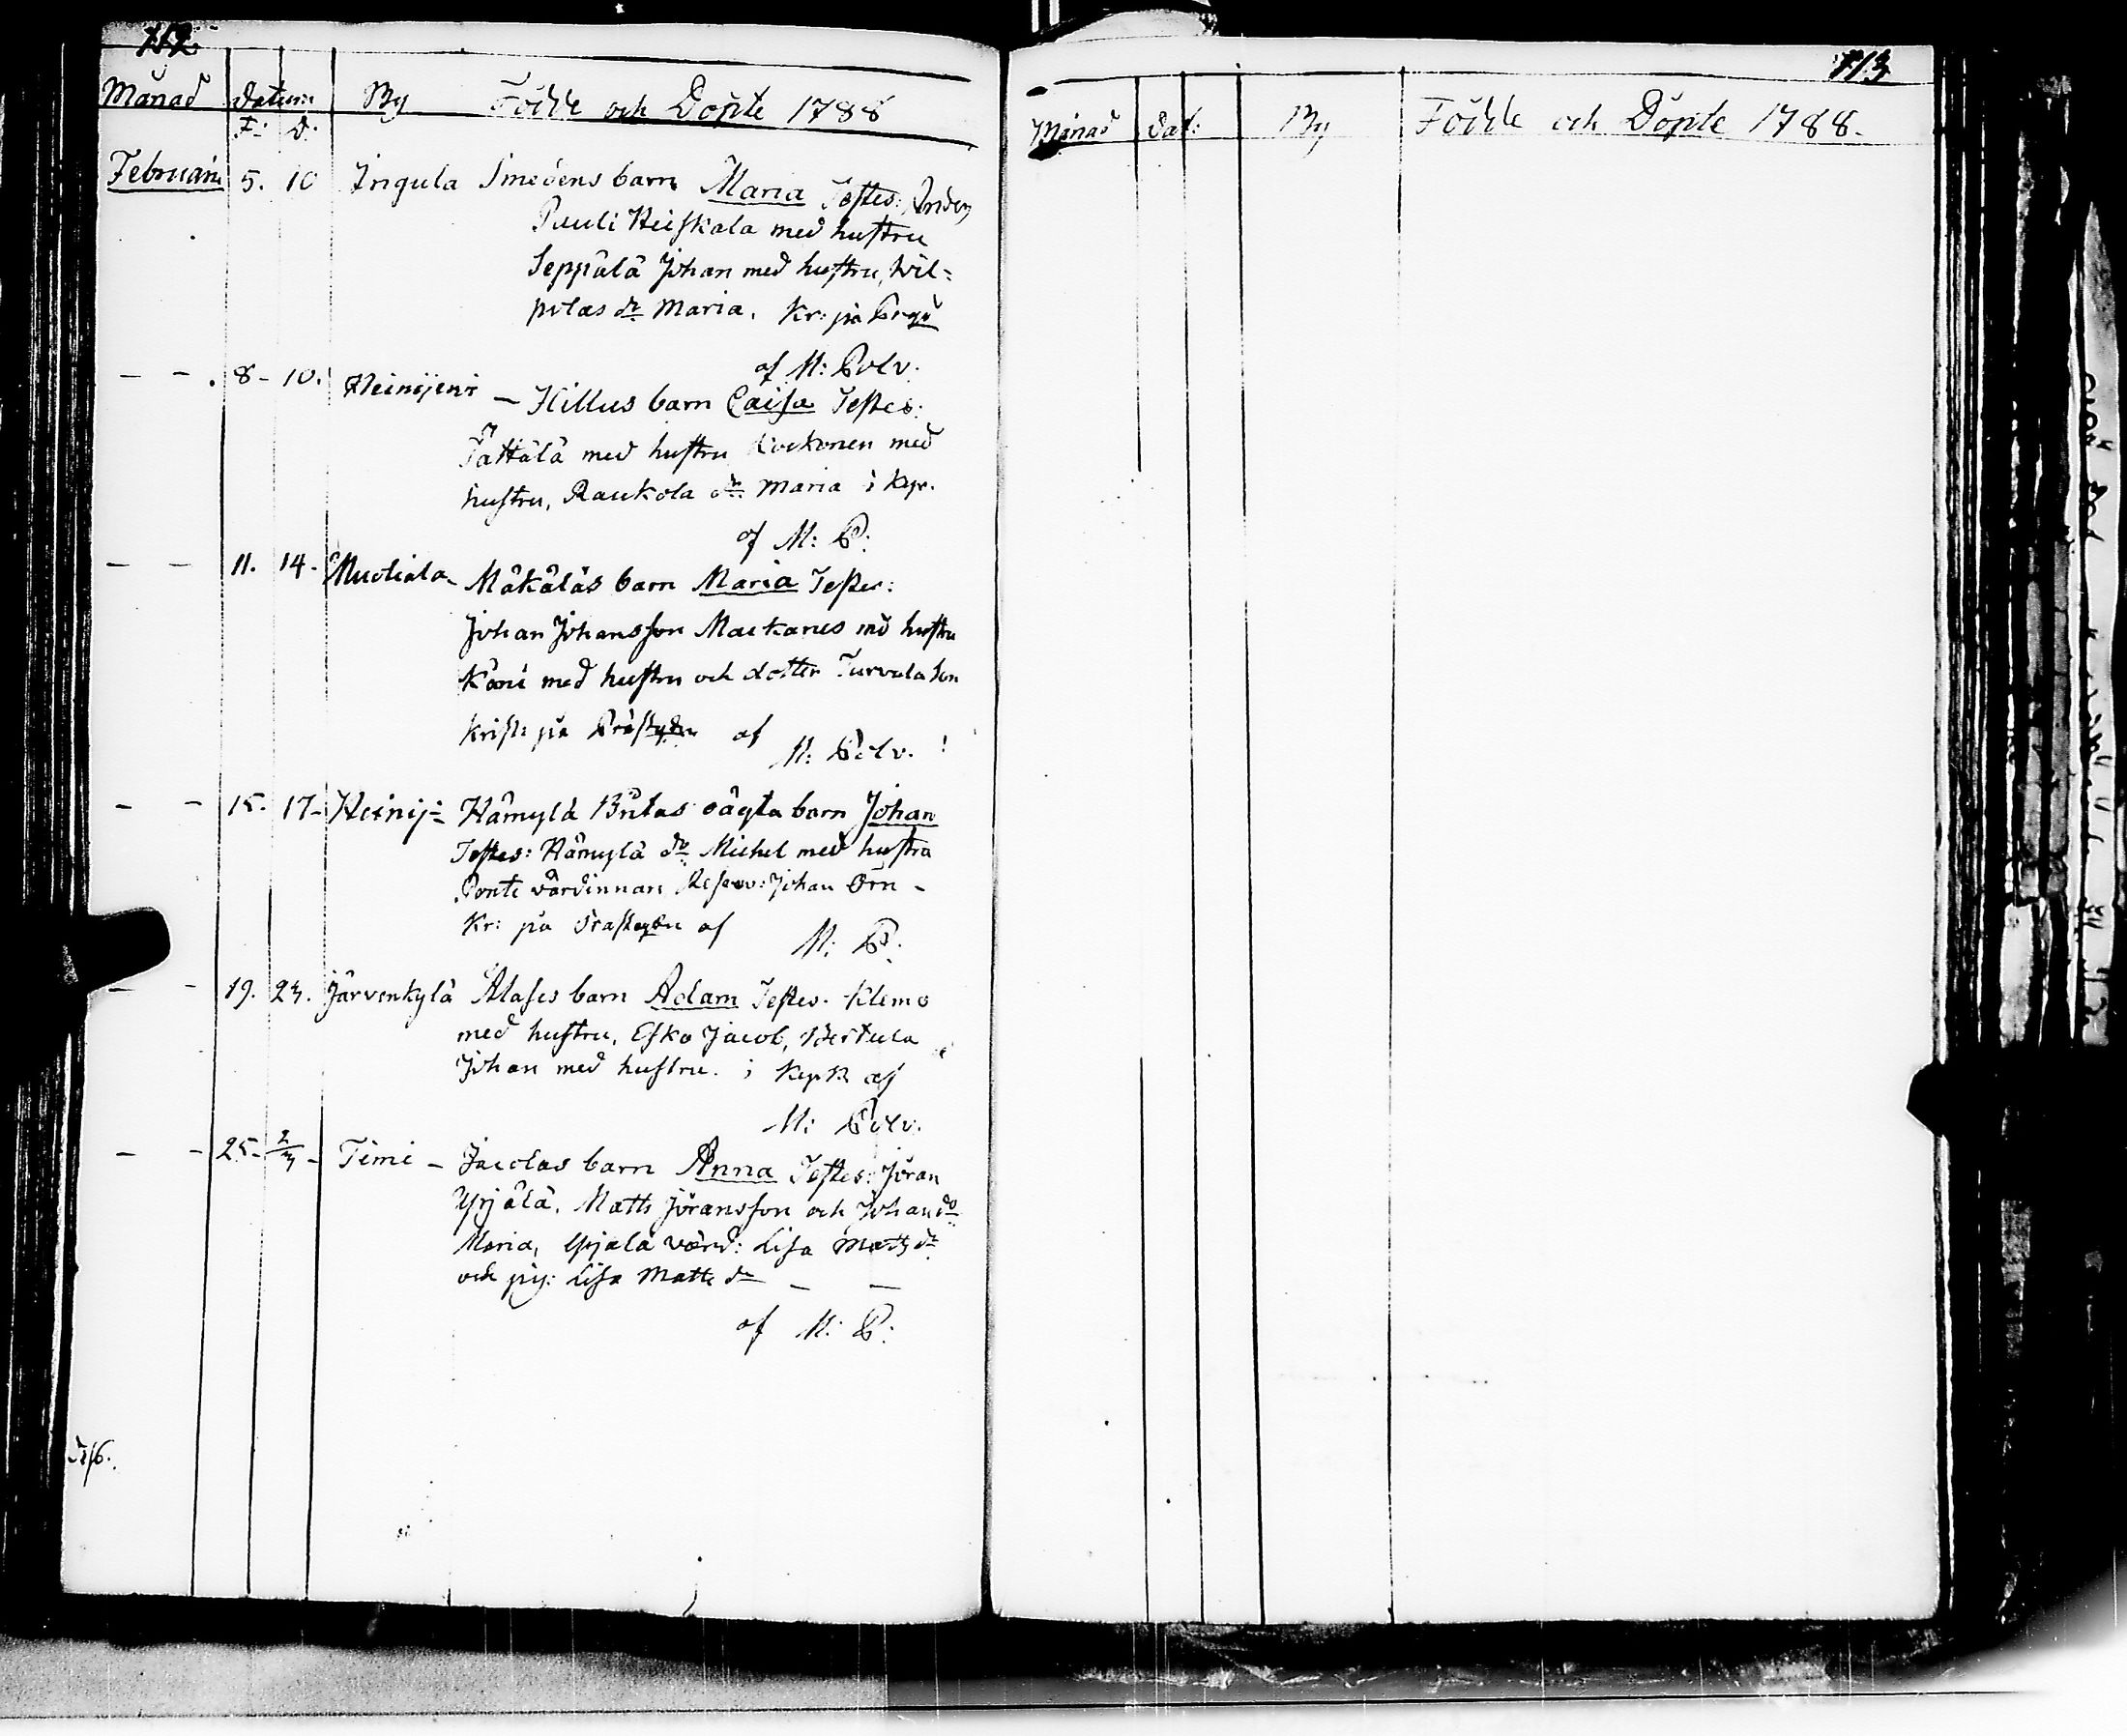 712
Månad Datum By Födde och Döpte 1788
F: D:
Februarii 5. 10 Ingula Smedens barn Maria Testes:
Pauli Heiskala med hustru
Seppälä Johan med hustru, Wil=
polas dr Maria. Kr: på
af M: Polv:
- - . 8 - 10. Heinijoki - Hillus barn Caisa Testes:
Tattälä med hustru Kockonen med
hustru, Raukola dr Maria i Kyr.
af M: P:
- - 11. 14 - Muotiala - Mäkäläs barn Maria Testes:
Johan Johansson Mackanes md hustru
Käni med hustru och dotter Turvala son
Krist: på af
M: Polv.
- - 15. 17 - Heinij= Hämylä Britas oägta barn Johan
Testes: Hämylä dr Michel med hustru
Ponti värdinnan Johan Örn -
Kr: på af
M: P:
- - 19. 23. Järvenkylä Alases barn Adam Testes. Klemo
med hustru, Esko Jacob, Bertula
Johan med hustru. i Kyrk af
M: Polv.
- - 25 - 2/3 - Timi - Jacolas barn Anna Testes: Jöran
Yrjälä, Matts Jöransson och Johan dr
Maria, Yrjälä värd: Lisa Matts dr
och pig: Lisa Matts dr - -
af M: P:
713
Månad Dat: By Födde och Döpte 1788.